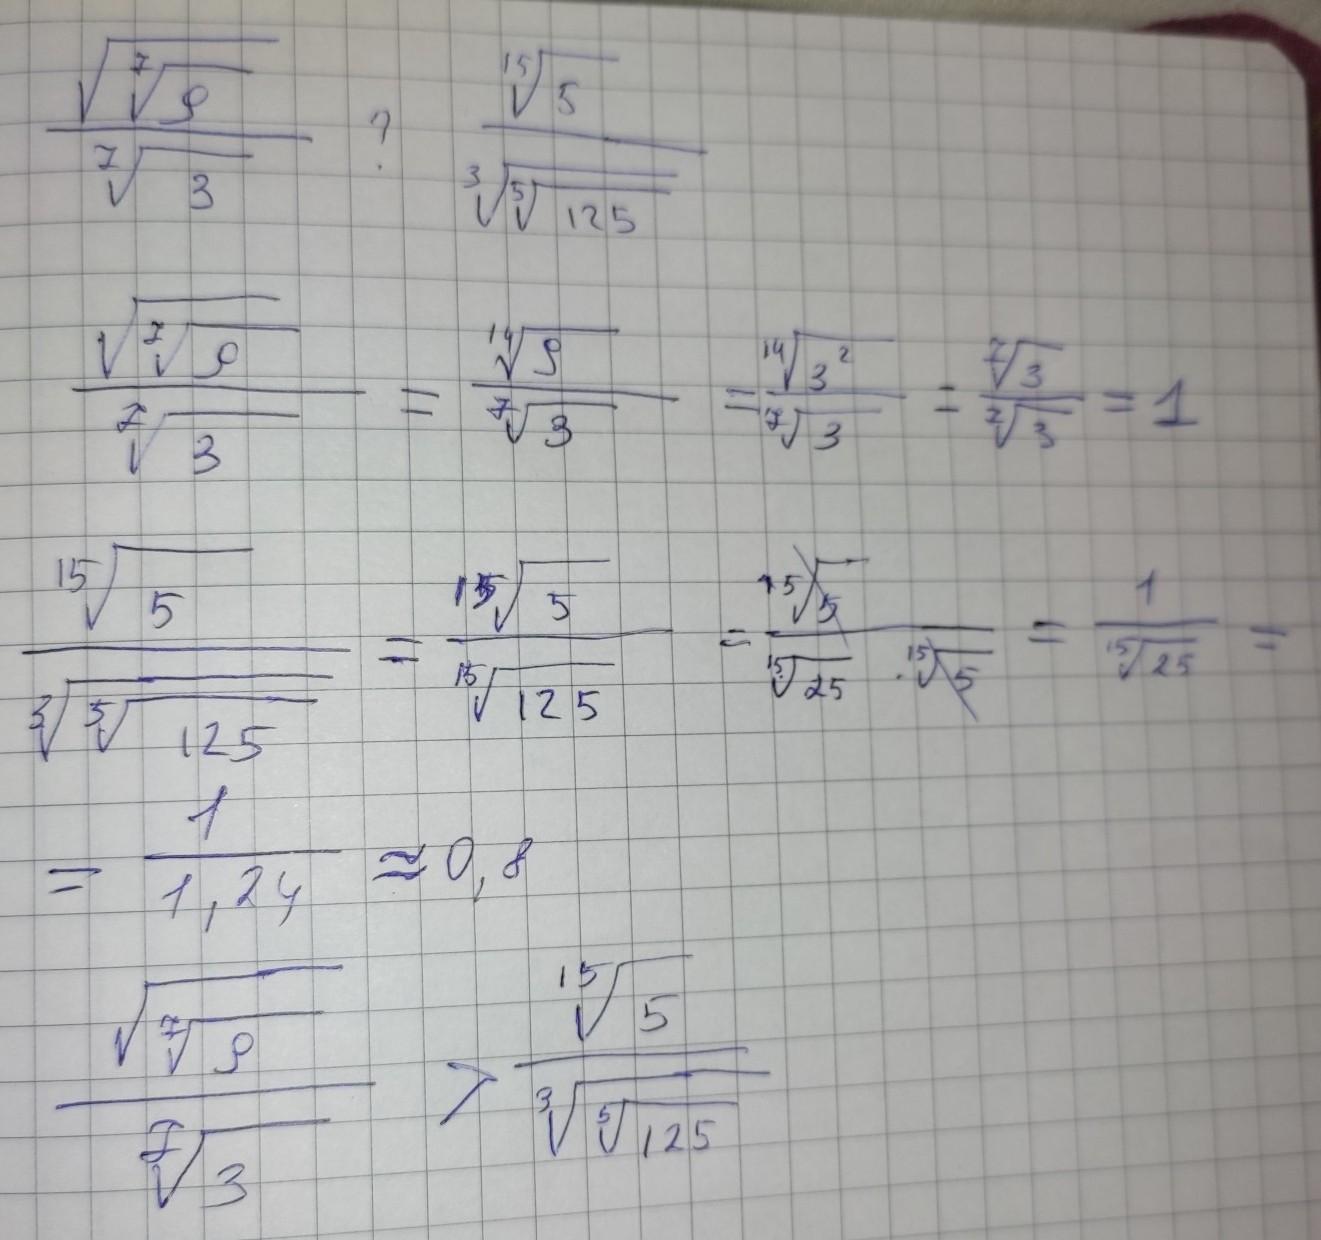 √(⁷√9) / ⁷√3 ? ¹⁵√5 / ³√(⁵√125)
√(⁷√9) / ⁷√3 = ¹⁴√9 / ⁷√3 = ¹⁴√3² / ⁷√3 = ⁷√3 / ⁷√3 = 1
¹⁵√5 / ³√(⁵√125) = ¹⁵√5 / ¹⁵√125 = ¹⁵√5 / ¹⁵√25 · ¹⁵√5 = 1 / ¹⁵√25 =
= 1 / 1,24 ≈ 0,8
√(⁷√9) / ⁷√3 > ¹⁵√5 / ³√(⁵√125)